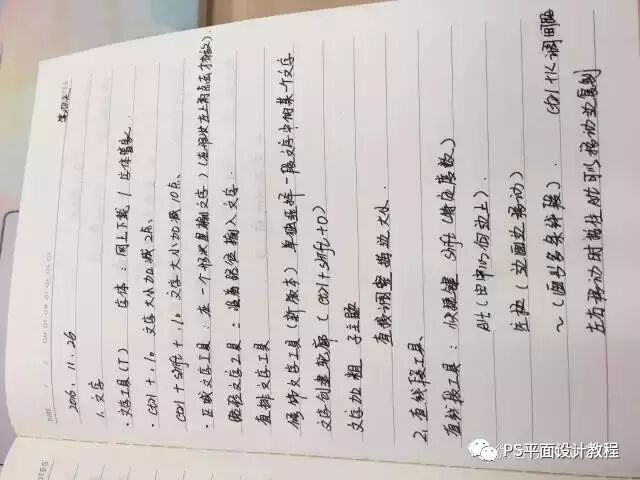 第四天
DATE
2016.11.26
1.文字
·文字工具(T) 字体：网上下载/字体管家
·Ctrl+,/。文字大小加减2点、
Ctrl+shift+,/。文字大小加减10点、
·区域文字工具：在一个形状里输文字)(在形状左上角点击才有效).
路径文字工具：沿着路径输入文字.
直排文字工具
修饰文字工具(新版本) 单独选择一段文字中的某个文字
文字创建轮廓(Ctrl+shift+O)
文字加粗
直接调整描边大小.
2.直线段工具、
直线段工具：快捷键 shift(特定度数)
Alt(由中心向边上).
空格(边画边移动)
~(画出多条线段). Ctrl+K调间距
左右移动时按住Alt可以移动并复制
NOTES
PS平面设计教程